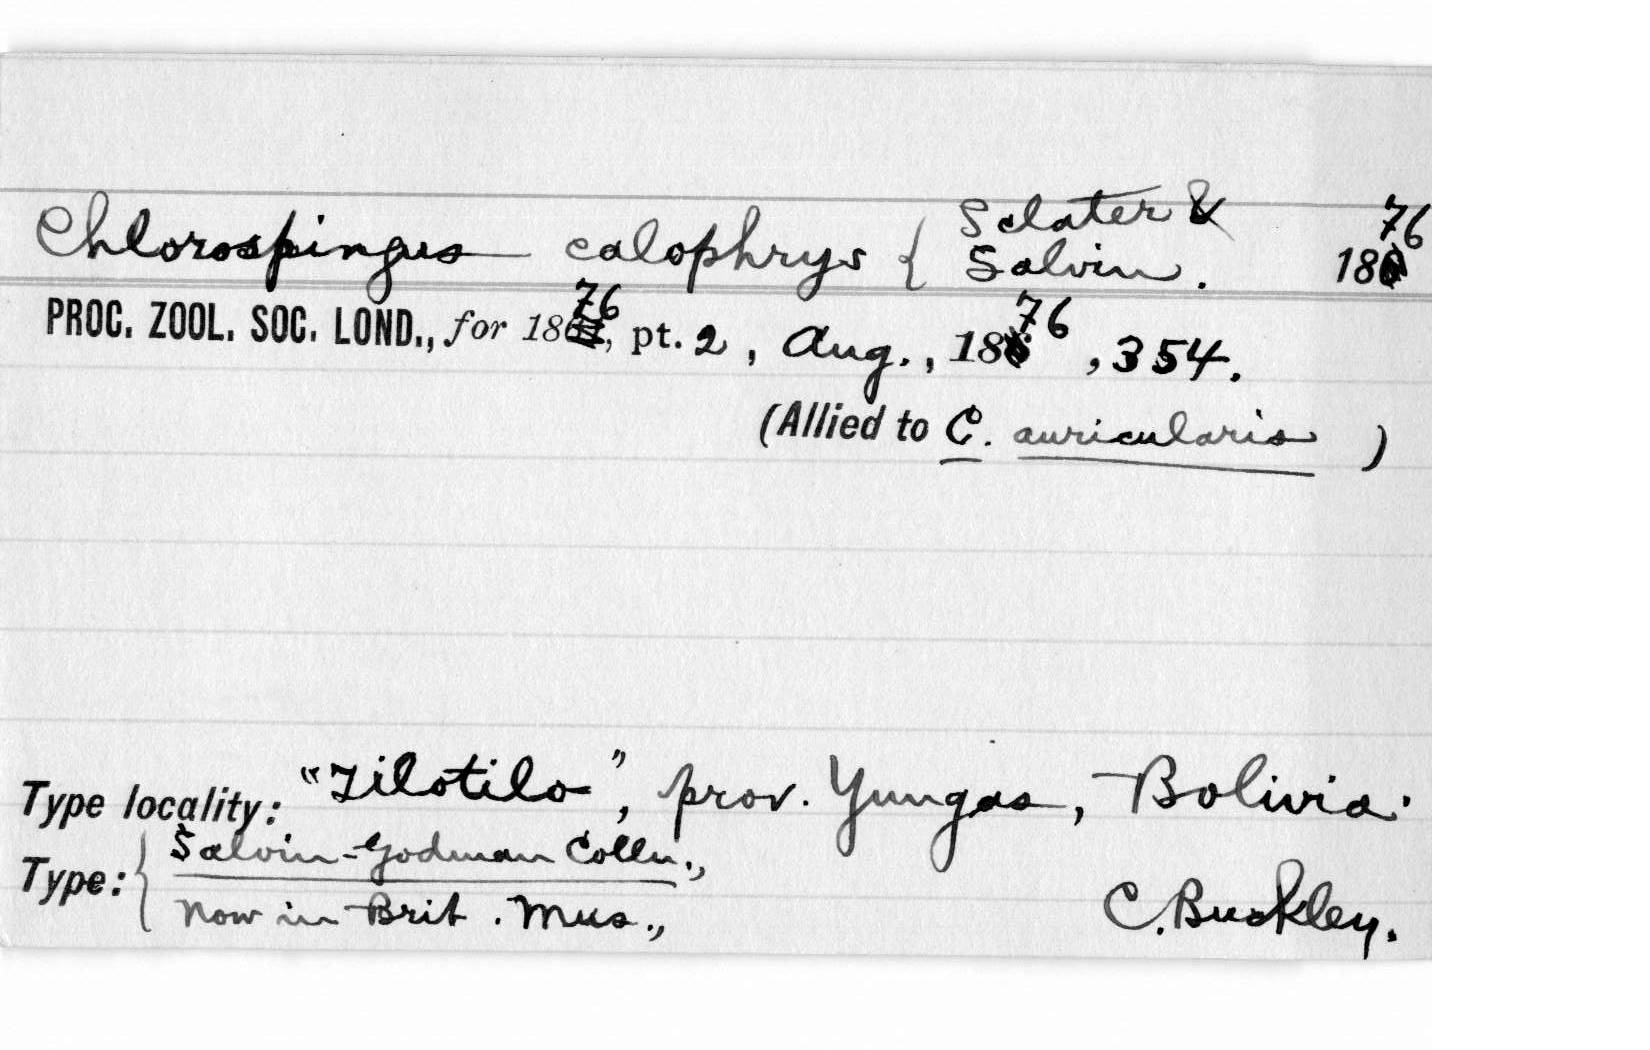 Chlorospingus calophrys { Sclater & Salvin. 1876
PROC. ZOOL. SOC. LOND., for 1876, pt. 2, Aug., 1876, 354.
(Allied to C. auricularis )
Type locality: "Tilotilo", prov. Yungas, Bolivia:
Type: { Salvin-Godman Colln.,
now in Brit. Mus., C. Buckley.